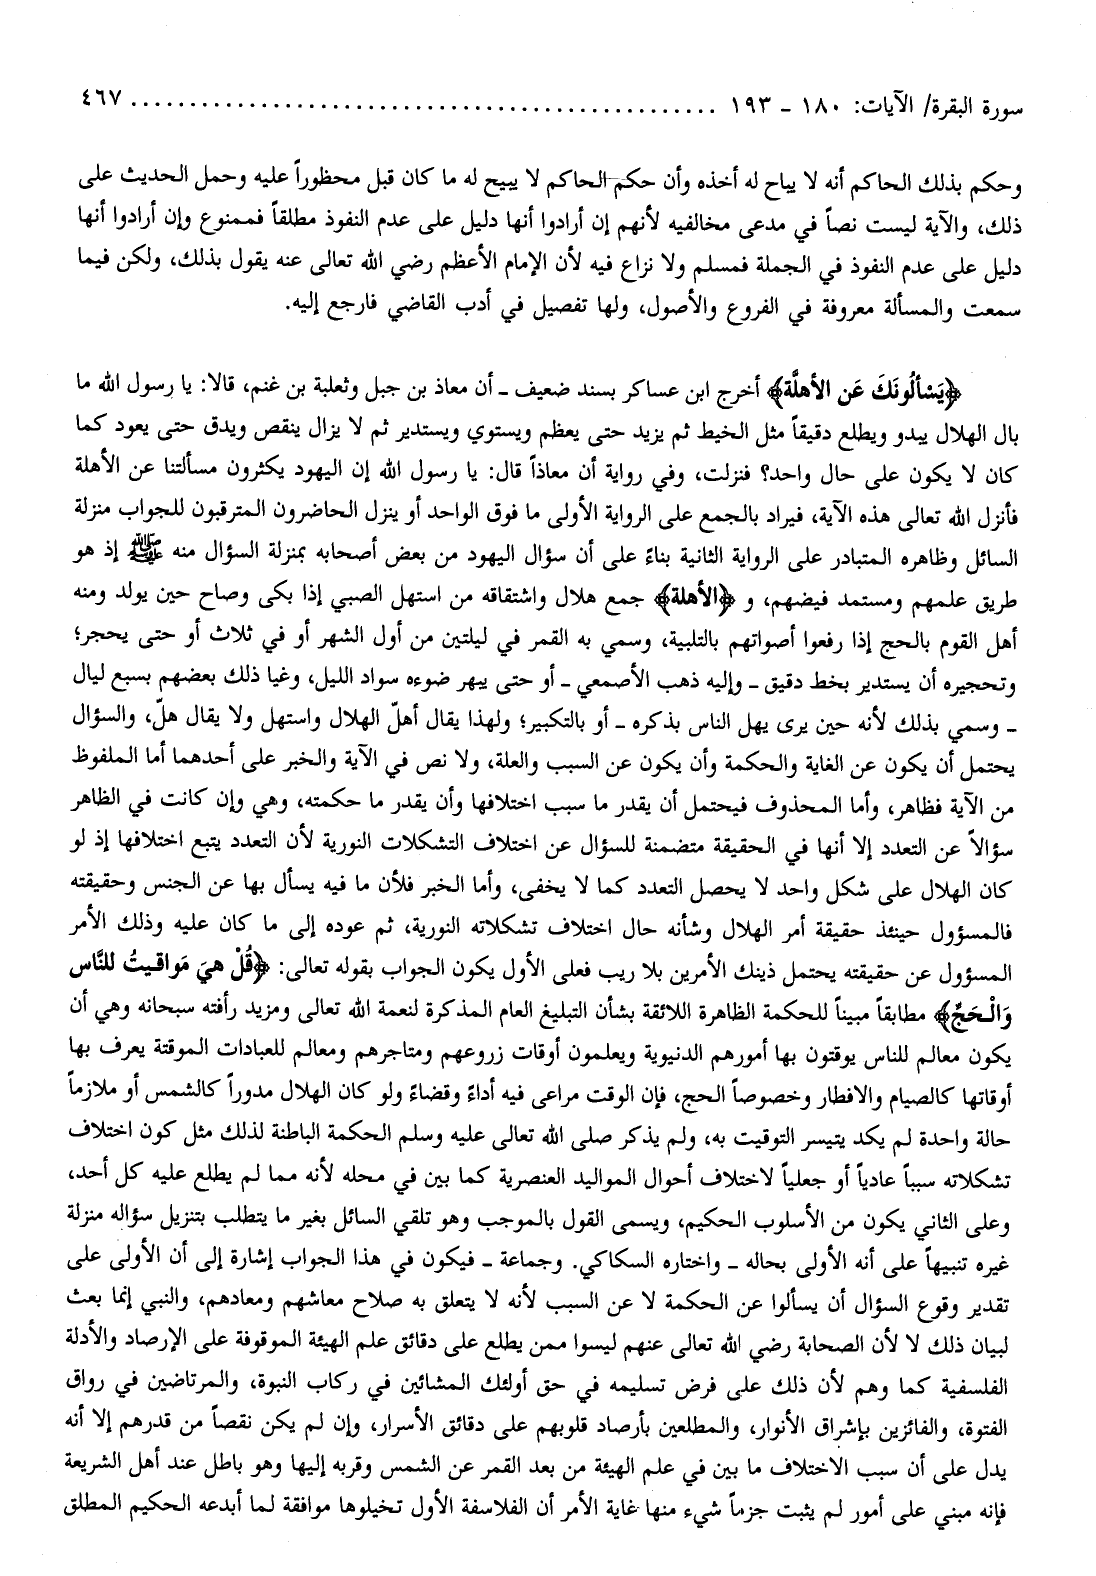 سورة البقرة/ الآيات: ١٨٠ ـ ١٩٣ .................................................. ٤٦٧
وحكم بذلك الحاكم أنه لا يباح له أخذه وأن حكم الحاكم لا يبيح له ما كان قبل محظوراً عليه وحمل الحديث على
ذلك، والآية ليست نصاً في مدعى مخالفيه لأنهم إن أرادوا أنها دليل على عدم النفوذ مطلقاً فممنوع وإن أرادوا أنها
دليل على عدم النفوذ في الجملة فمسلم ولا نزاع فيه لأن الإمام الأعظم رضي الله تعالى عنه يقول بذلك، ولكن فيما
سمعت والمسألة معروفة في الفروع والأصول، ولها تفصيل في أدب القاضي فارجع إليه.
﴿يَسْأَلُونَكَ عَن الأهلَّة﴾ أخرج ابن عساكر بسند ضعيف ـ أن معاذ بن جبل وثعلبة بن غنم، قالا: يا رسول الله ما
بال الهلال يبدو ويطلع دقيقاً مثل الخيط ثم يزيد حتى يعظم ويستوي ويستدير ثم لا يزال ينقص ويدق حتى يعود كما
كان لا يكون على حال واحد؟ فنزلت، وفي رواية أن معاذاً قال: يا رسول الله إن اليهود يكثرون مسألتنا عن الأهلة
فأنزل الله تعالى هذه الآية، فيراد بالجمع على الرواية الأولى ما فوق الواحد أو ينزل الحاضرون المترقبون للجواب منزلة
السائل وظاهره المتبادر على الرواية الثانية بناءً على أن سؤال اليهود من بعض أصحابه بمنزلة السؤال منه ﷺ إذ هو
طريق علمهم ومستمد فيضهم، و ﴿الأهلة﴾ جمع هلال واشتقاقه من استهل الصبي إذا بكى وصاح حين يولد ومنه
أهل القوم بالحج إذا رفعوا أصواتهم بالتلبية، وسمي به القمر في ليلتين من أول الشهر أو في ثلاث أو حتى يحجر؛
وتحجيره أن يستدير بخط دقيق ـ وإليه ذهب الأصمعي ـ أو حتى يبهر ضوءه سواد الليل، وغيا ذلك بعضهم بسبع ليال
ـ وسمي بذلك لأنه حين يرى يهل الناس بذكره ـ أو بالتكبير؛ ولهذا يقال أهلّ الهلال واستهل ولا يقال هلّ، والسؤال
يحتمل أن يكون عن الغاية والحكمة وأن يكون عن السبب والعلة، ولا نص في الآية والخبر على أحدهما أما الملفوظ
من الآية فظاهر، وأما المحذوف فيحتمل أن يقدر ما سبب اختلافها وأن يقدر ما حكمته، وهي وإن كانت في الظاهر
سؤالاً عن التعدد إلا أنها في الحقيقة متضمنة للسؤال عن اختلاف التشكلات النورية لأن التعدد يتبع اختلافها إذ لو
كان الهلال على شكل واحد لا يحصل التعدد كما لا يخفى، وأما الخبر فلأن ما فيه يسأل بها عن الجنس وحقيقته
فالمسؤول حينئذ حقيقة أمر الهلال وشأنه حال اختلاف تشكلاته النورية، ثم عوده إلى ما كان عليه وذلك الأمر
المسؤول عن حقيقته يحتمل ذينك الأمرين بلا ريب فعلى الأول يكون الجواب بقوله تعالى: ﴿قُلْ هيَ مَواقـيتُ للنَّاس
وَالْـحَجِّ﴾ مطابقاً مبيناً للحكمة الظاهرة اللائقة بشأن التبليغ العام المذكرة لنعمة الله تعالى ومزيد رأفته سبحانه وهي أن
يكون معالم للناس يوقتون بها أمورهم الدنيوية ويعلمون أوقات زروعهم ومتاجرهم ومعالم للعبادات الموقتة يعرف بها
أوقاتها كالصيام والافطار وخصوصاً الحج، فإن الوقت مراعى فيه أداءً وقضاءً ولو كان الهلال مدوراً كالشمس أو ملازماً
حالة واحدة لم يكد يتيسر التوقيت به، ولم يذكر صلى الله تعالى عليه وسلم الحكمة الباطنة لذلك مثل كون اختلاف
تشكلاته سبباً عادياً أو جعلياً لاختلاف أحوال المواليد العنصرية كما بين في محله لأنه مما لم يطلع عليه كل أحد،
وعلى الثاني يكون من الأسلوب الحكيم، ويسمى القول بالموجب وهو تلقي السائل بغير ما يتطلب بتنزيل سؤاله منزلة
غيره تنبيهاً على أنه الأولى بحاله ـ واختاره السكاكي. وجماعة ـ فيكون في هذا الجواب إشارة إلى أن الأولى على
تقدير وقوع السؤال أن يسألوا عن الحكمة لا عن السبب لأنه لا يتعلق به صلاح معاشهم ومعادهم، والنبي إنما بعث
لبيان ذلك لا لأن الصحابة رضي الله تعالى عنهم ليسوا ممن يطلع على دقائق علم الهيئة الموقوفة على الإرصاد والأدلة
الفلسفية كما وهم لأن ذلك على فرض تسليمه في حق أولئك المشائين في ركاب النبوة، والمرتاضين في رواق
الفتوة، والفائزين بإشراق الأنوار، والمطلعين بأرصاد قلوبهم على دقائق الأسرار، وإن لم يكن نقصاً من قدرهم إلا أنه
يدل على أن سبب الاختلاف ما بين في علم الهيئة من بعد القمر عن الشمس وقربه إليها وهو باطل عند أهل الشريعة
فإنه مبني على أمور لم يثبت جزماً شيء منها غاية الأمر أن الفلاسفة الأول تخيلوها موافقة لما أبدعه الحكيم المطلق